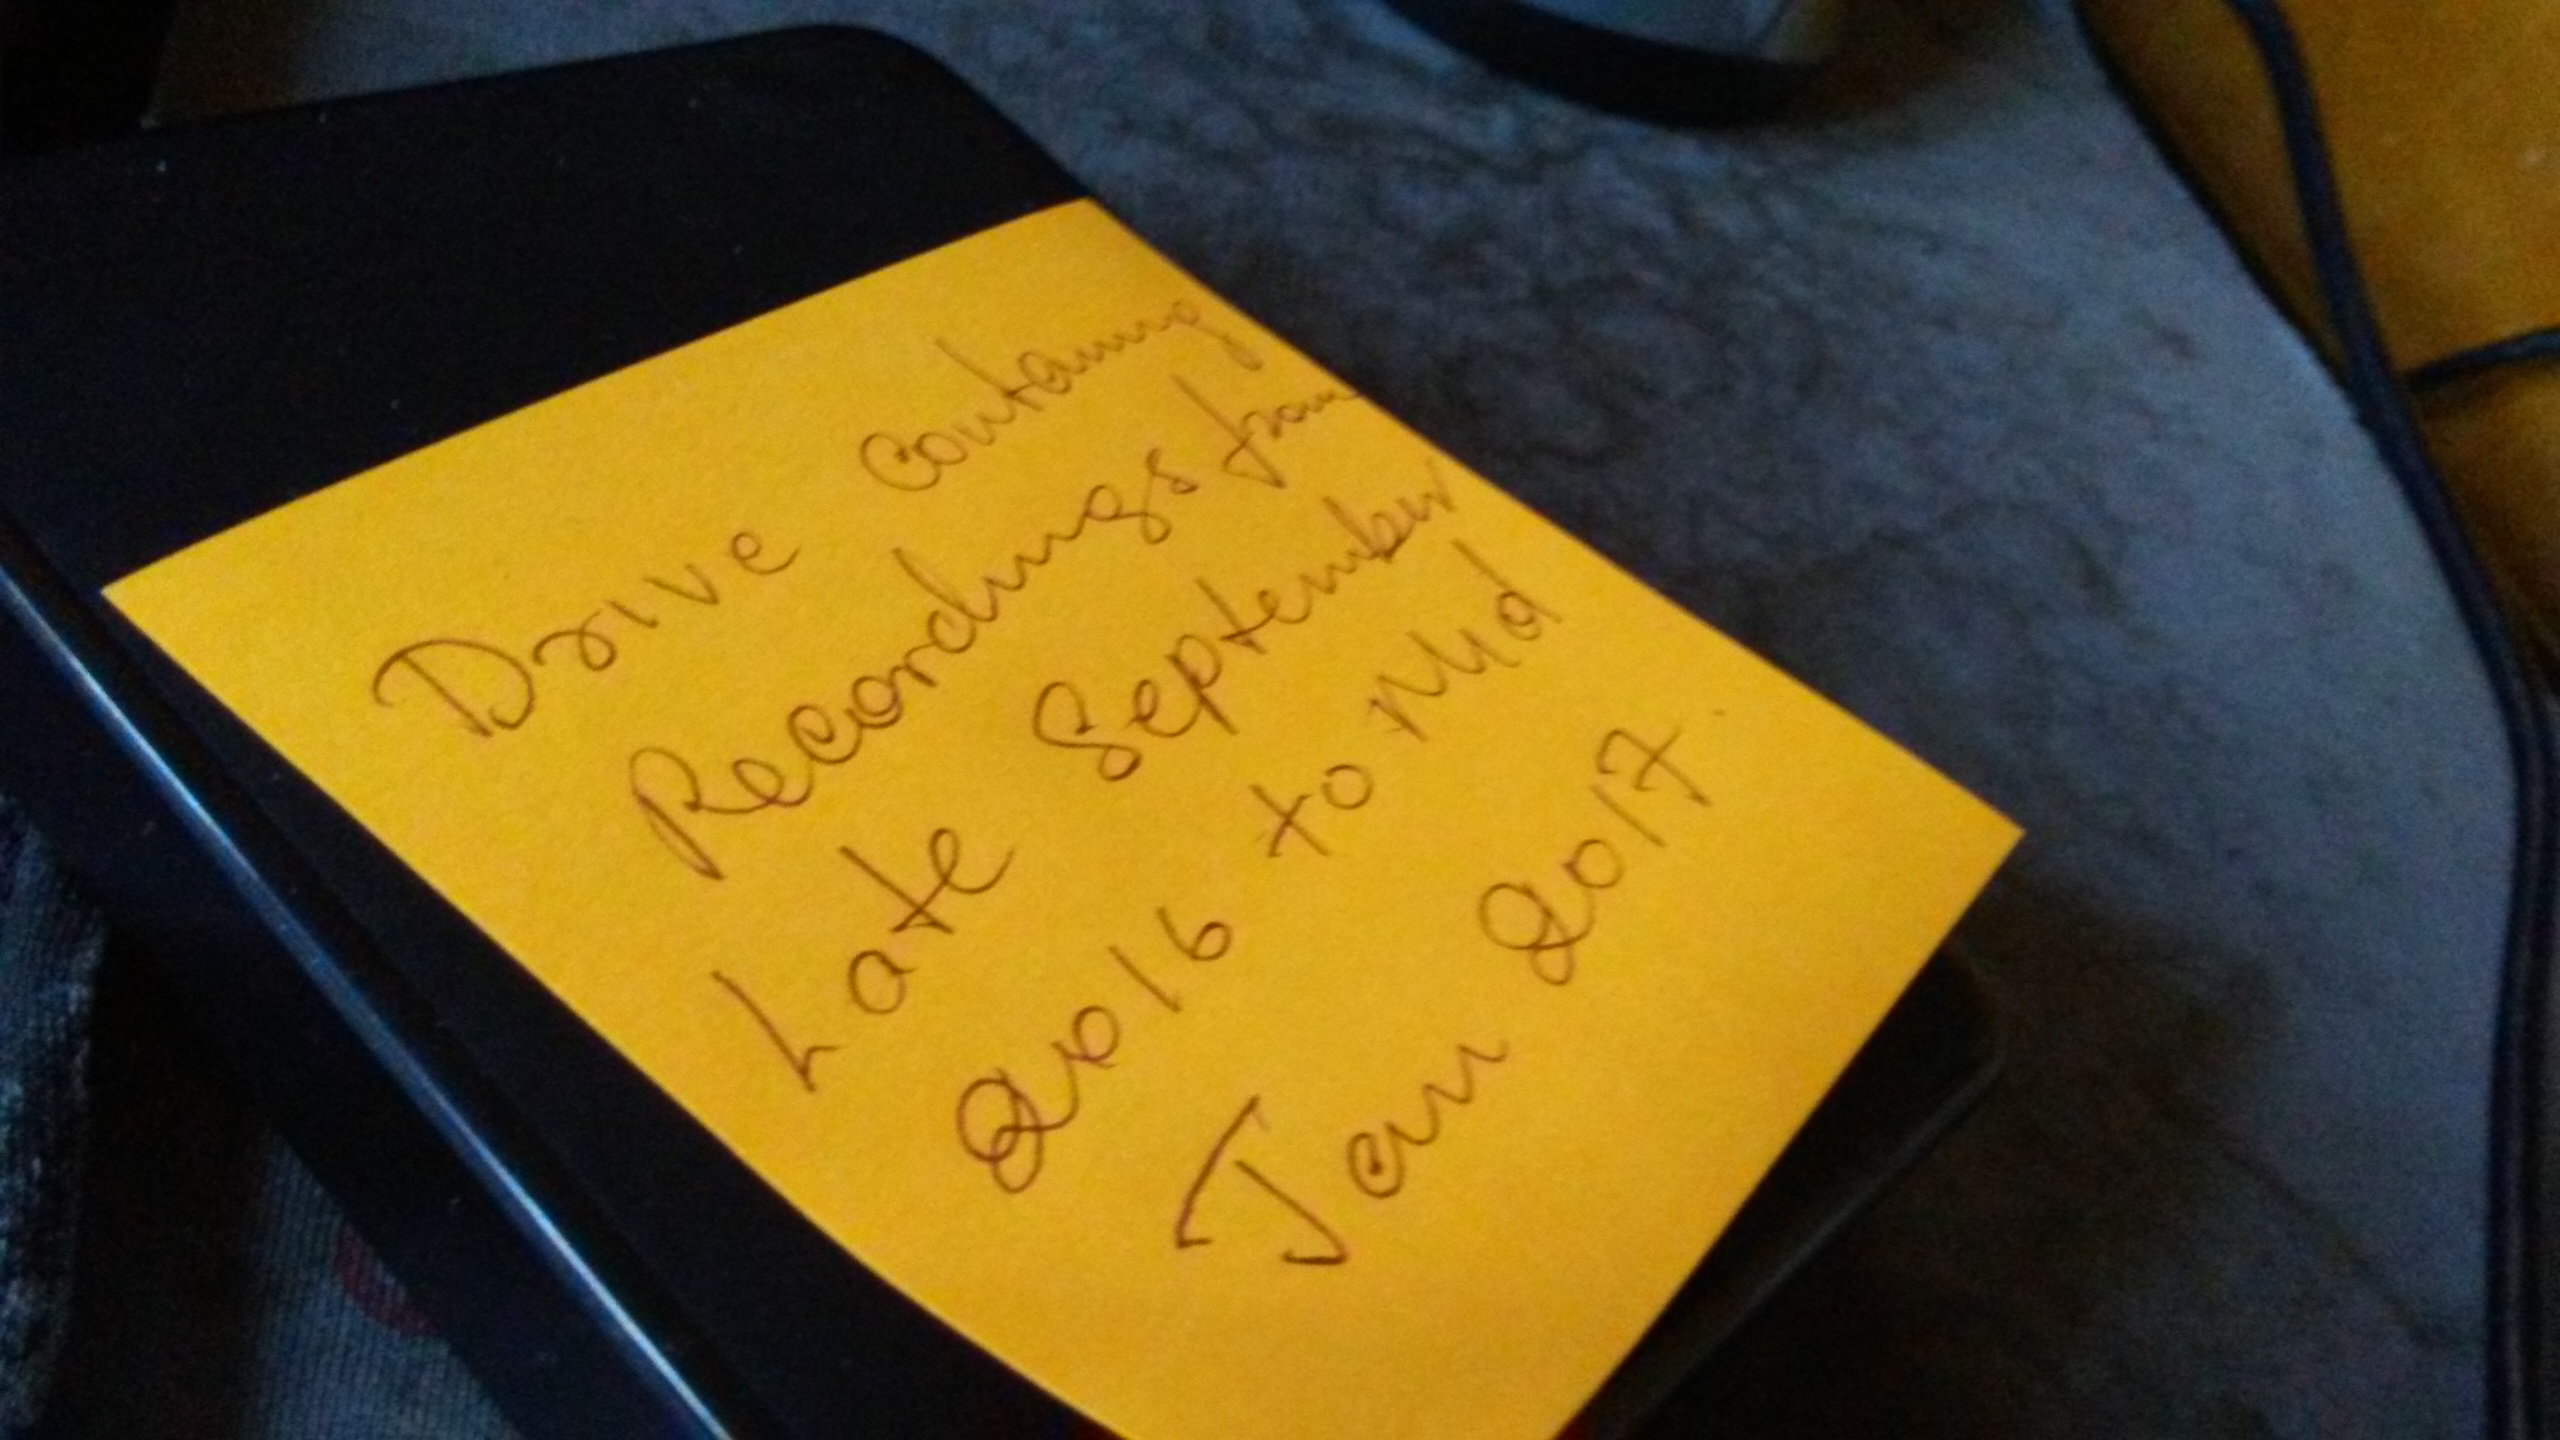 Drive containing
Recordings from
Late September
2016 to Mid
Jan 2017